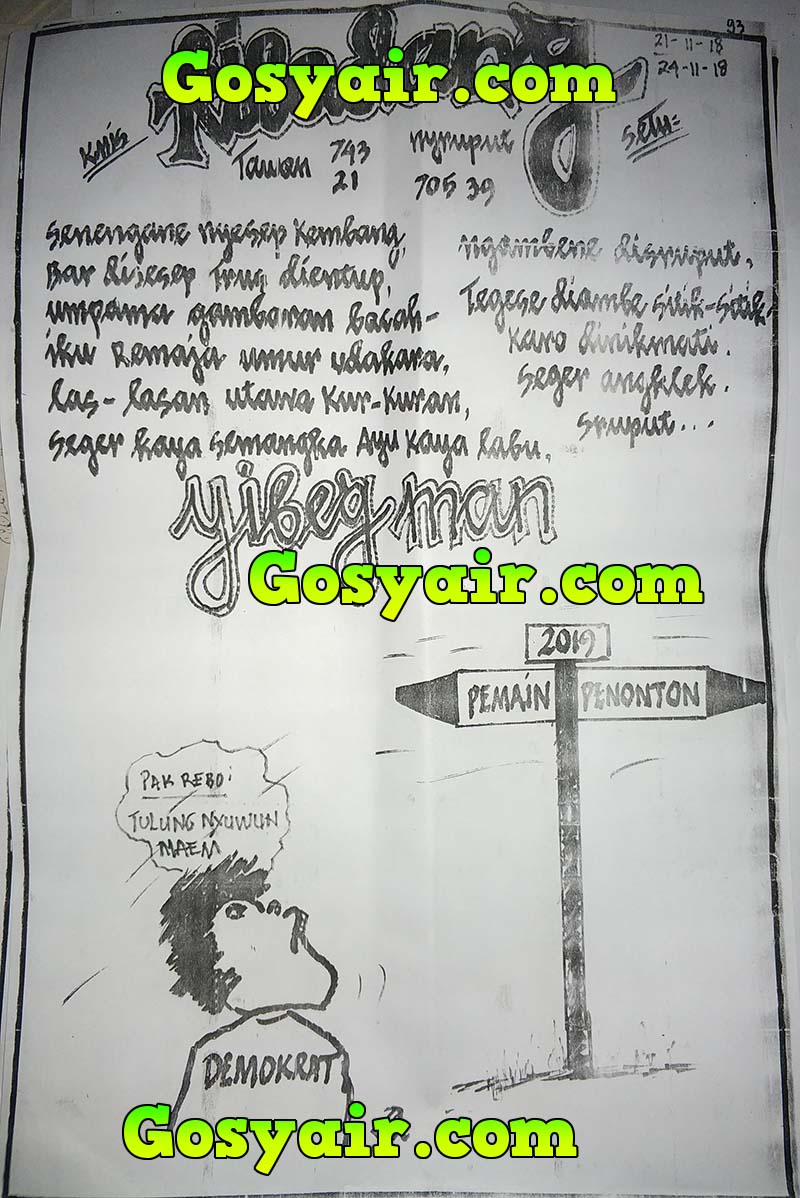 93
21-11-18
24-11-18
Gosyair.com
Kmis
Setu=
Tawon 743
21
nyruput
705 39
senengane nyesep Kembang,
Bar disesep trus dientup,
umpama gambaran bacah-
iku Remaja umur udakara,
las-lasan utawa Kur-Kuran,
Seger kaya semangka Ayu Kaya labu.
ngambene disruput,
Tegese diambe sitik-sitik
Karo dinikmati.
Seger angklek.
Sruput...
yibeg man
Gosyair.com
2019
PEMAIN PENONTON
PAK REBO:
TULUNG NYUWUN
MAEM
DEMOKRAT
Gosyair.com